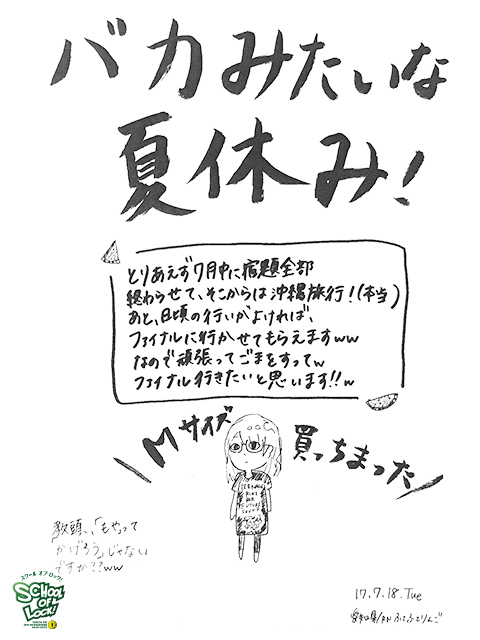 バカみたいな
夏休み!
とりあえず7月中に宿題全部
終わらせて、そこからは沖縄旅行!(本当)
あと、日頃の行いがよければ、
ファイナルに行かせてもらえますww
なので頑張ってごまをすってw
ファイナル行きたいと思います!!w
\Mサイズ 買っちまった/
教頭、「もやって
かげろう」じゃない
ですか??ww
スクール オブ ロック!
SCHOOL
OF
LOCK!
17.7.18.Tue